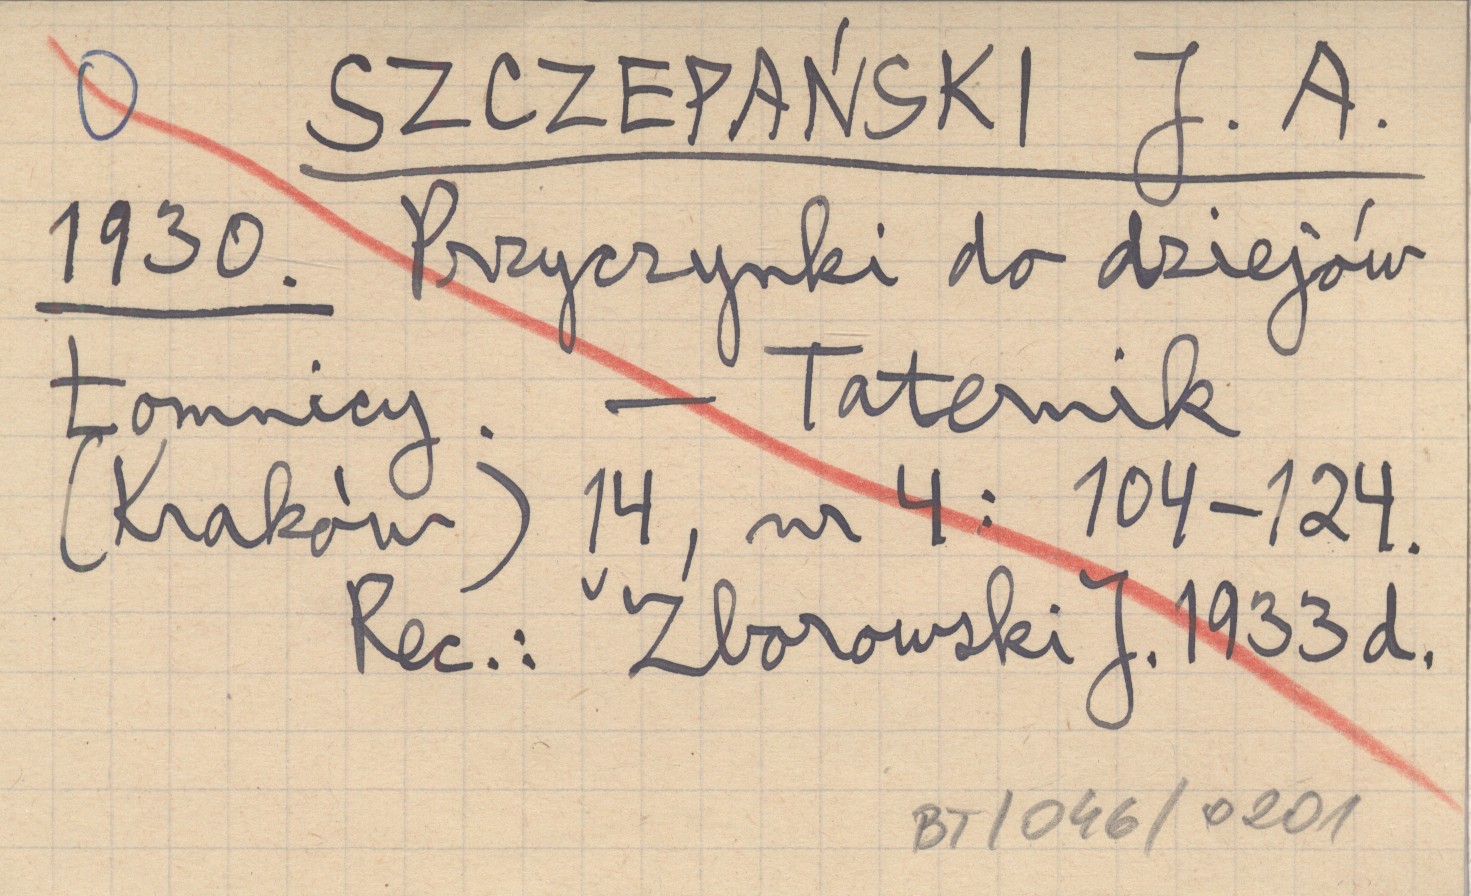 O SZCZEPAŃSKI J. A.
1930. Przyczynki do dziejów
Łomnicy. — Taternik
(Kraków) 14, nr 4: 104–124.
Rec.: Zborowski J. 1933 d.
BT/046/0201